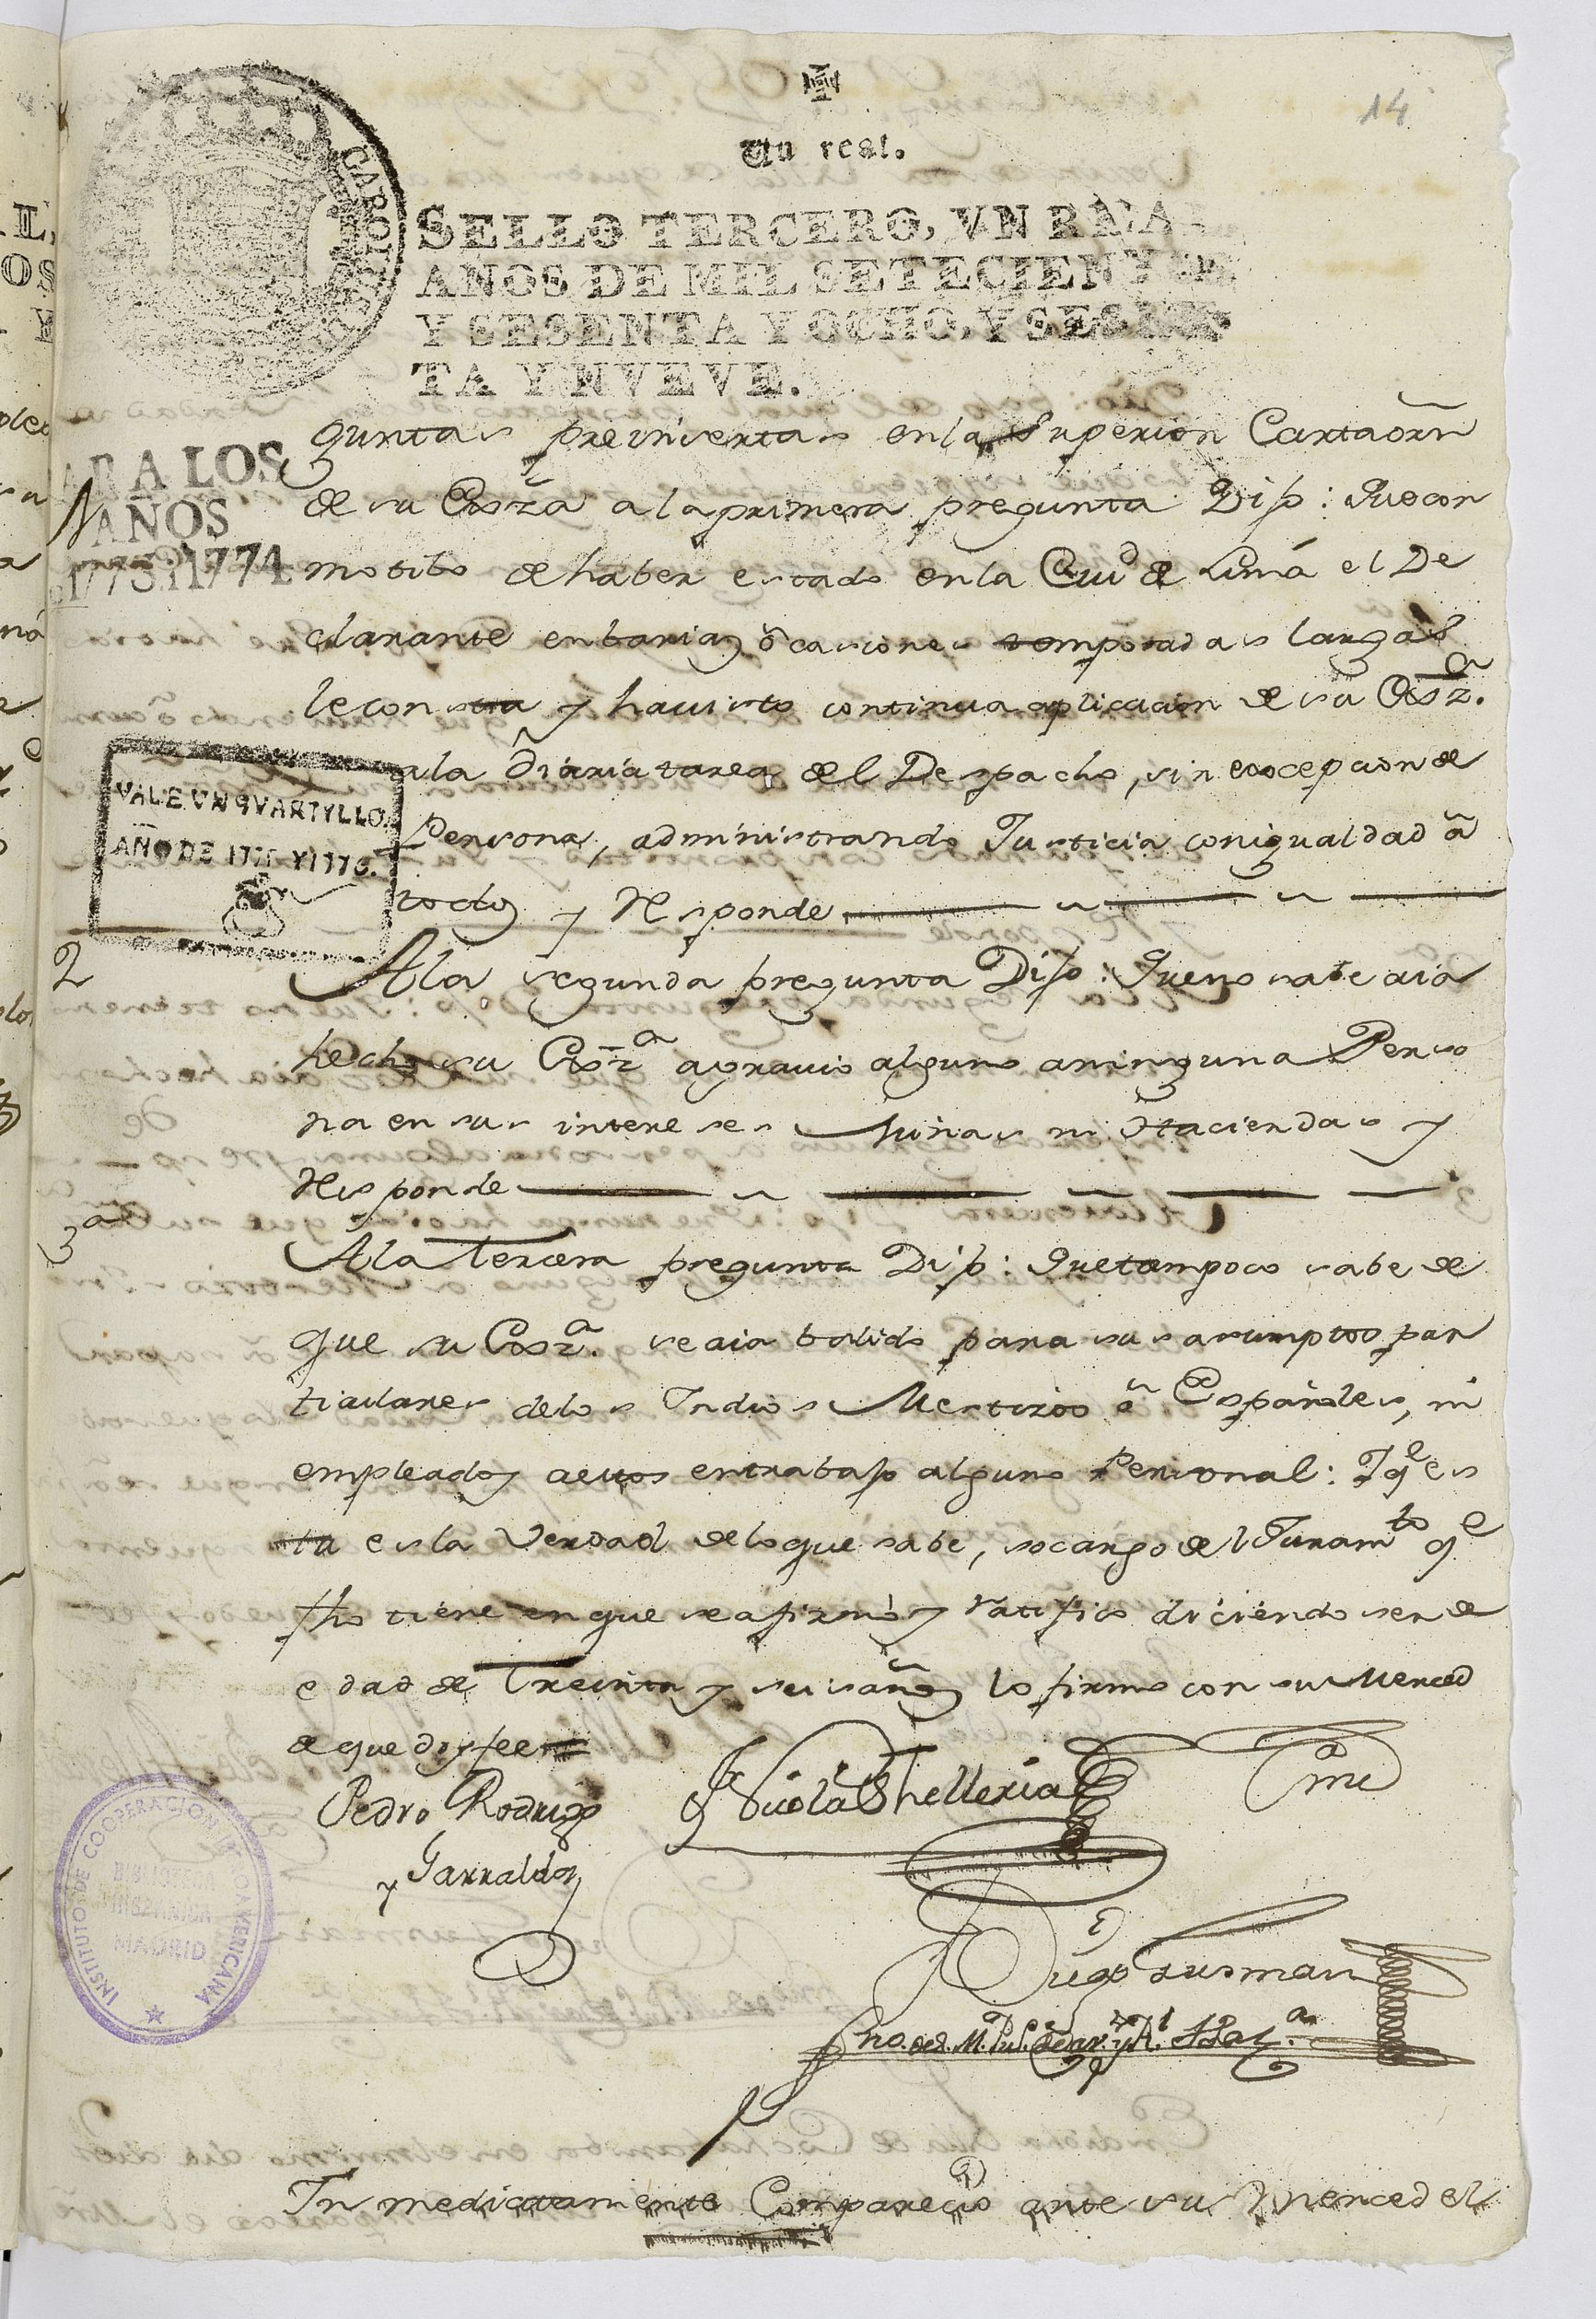 14
Un real.
SELLO TERCERO, VN REAL
AÑOS DE MIL SETECIENTOS
Y SESENTA Y OCHO, Y SESEN
TA Y NVEVE.
PARA LOS
AÑOS
1773. Y 1774
guntas preinsertas en la Superior Carta orñ
de su Exza a la primera pregunta Dijo: Que con
1
motibo de haber estado en la Ciud de Lima el De
clarante en barias ocasiones temporadas largas
le consta y ha visto continua aplicacion de su Exza.
a la Diaria tarea del Despacho, sin excepcion de
VALE VN QVARTYLLO
AÑO DE 1775 Y 1776.
Persona, administrando Justicia con igualdad â
todos y Responde
2
A la segunda pregunta Dijo: Que no sabe aia
hecho su Exza agravio alguno a ninguna Perso
na en sus intereses Minas ni Haciendas y
Responde
3a
A la Tercera pregunta Dijo: Que tampoco sabe de
que su Exza. se aia balido para sus asumptos par
ticulares de los Indios Mestizos ô Españoles, ni
empleados a estos en trabajo alguno Personal: Y qe es
ta es la Verdad de lo que sabe, so cargo del Juramto qe
fho tiene en que se afirmó y ratifico diciendo ser de
edad de Treinta y seis años lo firmo con su Merced
de que doy fee
Pedro Rodrigo
y Garralda
Nicolas Thelleria
Ante mi
Diego Gusman
INSTITUTO DE COOPERACION IBEROAMERICANA
BIBLIOTECA
HISPANICA
MADRID
Inmediatamente Comparecio ante su Merced el